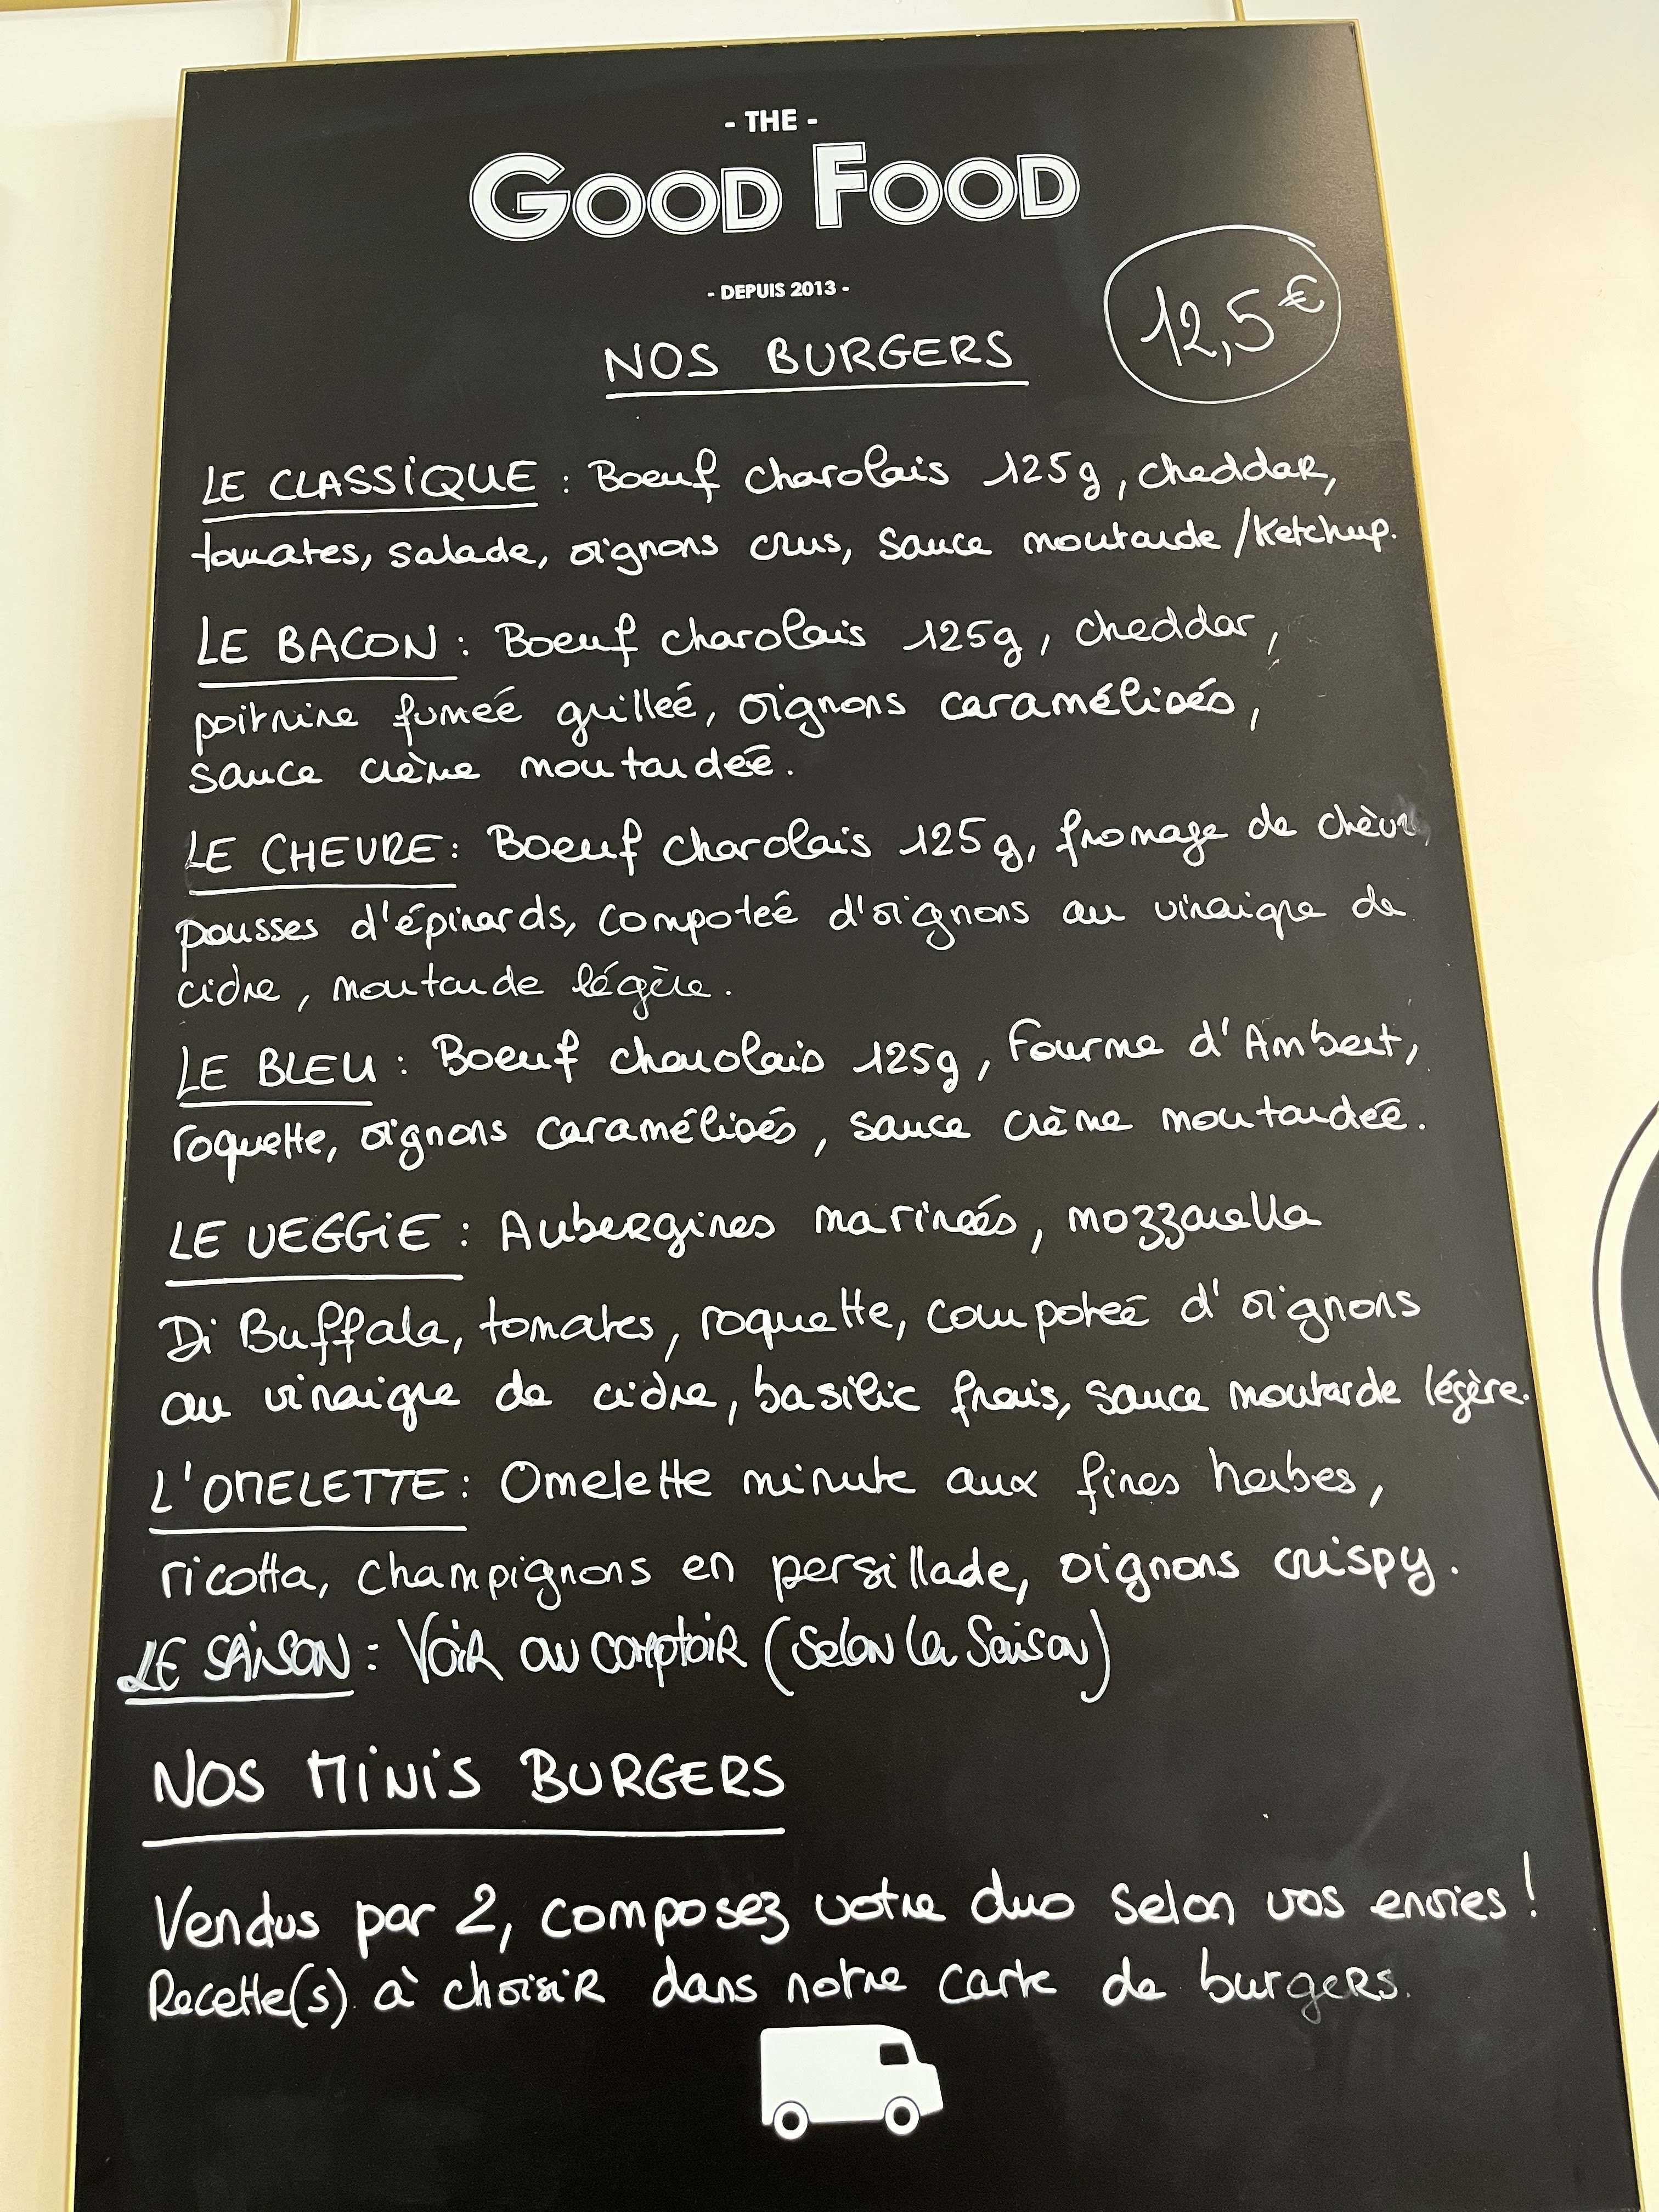 - THE -
GOOD FOOD
- DEPUIS 2013 -
12,5€
NOS BURGERS
LE CLASSIQUE : Boeuf charolais 125g, cheddar,
tomates, salade, oignons crus, sauce moutarde/ketchup.
LE BACON : Boeuf charolais 125g, cheddar,
poitrine fumée grillée, oignons caramélisés,
sauce crème moutardée.
LE CHEVRE : Boeuf charolais 125g, fromage de chèvre,
pousses d'épinards, compotée d'oignons au vinaigre de
cidre, moutarde légère.
LE BLEU : Boeuf charolais 125g, Fourme d'Ambert,
roquette, oignons caramélisés, sauce crème moutardée.
LE VEGGIE : Aubergines marinées, mozzarella
Di Buffala, tomates, roquette, compotée d'oignons
au vinaigre de cidre, basilic frais, sauce moutarde légère.
L'OMELETTE : Omelette minute aux fines herbes,
ricotta, champignons en persillade, oignons crispy.
LE SAISON : Voir au comptoir (Selon la Saison)
NOS MINIS BURGERS
Vendus par 2, composez votre duo selon vos envies !
Recette(s) à choisir dans notre carte de burgers.